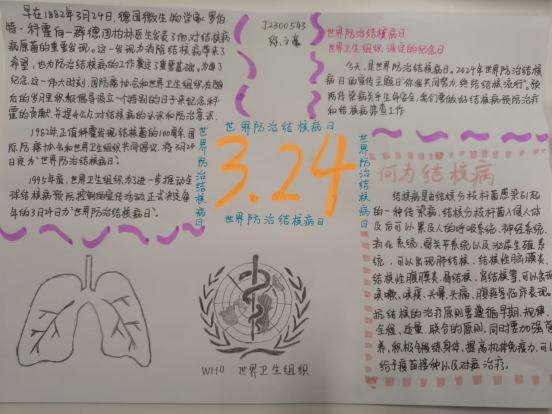 早在1882年3月24日,德国微生物学家罗伯
特·科霍向一群德国柏林医生发表了他对结核病
病原菌的重要发现。这一发现为消除结核病带来了
希望,也为防治结核病的工作奠定了重要基础。为了
纪念这一伟大时刻,国防痨协会和世界卫生组织在随
后的岁月里积极倡导设立一个特别的日子来纪念科
霍的贡献,并提高公众对结核病的认识和防治意识。
1982年正值科霍发现结核菌的100周年,国
际防痨协会和世界卫生组织共同倡议,将3月24日
定为"世界防治结核病日"。
1995年底,世界卫生组织为了进一步推动全
球结核病预防控制的宣传活动,正式决定每
年的3月24日为"世界防治结核病日"。
J2300543
世界防治结核病日
世界卫生组织 设定的纪念日
今天,是世界防治结核病日。2024年世界防治结核
病日的宣传主题
和结核病筛查工作
世界防治结核病日
世界防治结核病日
3.24
世界防治结核病日
世界防治结核病日
何为结核病
结核病是由结核分枝杆菌感染引起
的一种传染病,结核分枝杆菌入侵人体
及后可以累及人的呼吸系统、神经系统、
消化系统、骨关节系统以及泌尿生殖系
统,可以出现肺结核、结核性脑膜炎、
结核性腹膜炎、肠结核、骨结核等,可以出现
咳嗽、咳痰、头晕、头痛、腹痛等临床表现。
抗结核的治疗原则要遵循早期、规律、
全程、适量、联合的原则,同时增加强营
养,积极锻炼身体,提高机体免疫力,可以
给予疫苗接种以及对症治疗。
WHO 世界卫生组织